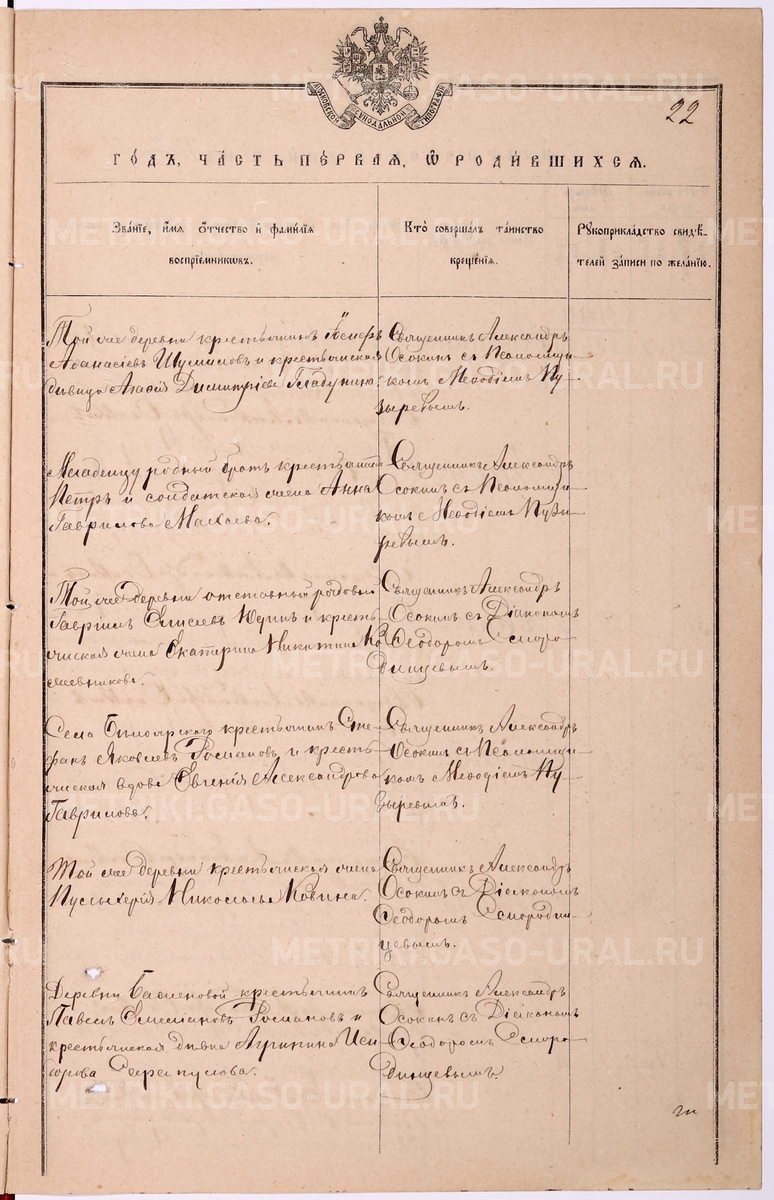 МОСКОВСКОЙ СѴНОДАЛЬНОЙ ТИПОГРАФІИ
22
ГОДЪ, ЧАСТЬ ПЕРВАЯ, Ѡ РОДИВШИХСЯ.
Званіе, имя отчество и фамилія
воспріемниковъ.
Кто совершалъ таинство
крещенія.
Рукоприкладство свидѣ-
телей записи по желанію.
Той же деревни крестьянинъ Іосифъ
Аѳанасіевъ Шумиловъ и крестьянская
дѣвица Агафія Димитріева Гладунина
Священникъ Александръ
Осокинъ съ Псаломщи-
комъ Меѳодіемъ Пу-
зыревымъ.
Младенцу родный братъ крестьянинъ
Петръ и солдатская жена Анна
Гаврилова
Священникъ Александръ
Осокинъ съ Псаломщи-
комъ Меѳодіемъ Пузы-
ревымъ.
Той же деревни отставный рядовой
Гавріилъ Елисеевъ Юдинъ и кресть-
янская жена Екатерина Никитина Ко
жевникова.
Священникъ Александръ
Осокинъ съ Діакономъ
Ѳеодоромъ Сморо-
динцевымъ.
Села крестьянинъ Сте-
фанъ Яковлевъ Росмановъ и кресть-
янская вдова Евгенія Александрова
Гаврилова.
Священникъ Александръ
Осокинъ съ Псаломщи-
комъ Меѳодіемъ Пу-
зыревымъ.
Той же деревни крестьянская жена
Пульхерія Николаева
Священникъ Александръ
Осокинъ съ Діакономъ
Ѳеодоромъ Смородин-
цевымъ.
Деревни крестьянинъ
Павелъ Емеліановъ Росмановъ и
крестьянская дѣвка Агрипина Иси-
дорова Сарапулова.
Священникъ Александръ
Осокинъ съ Діакономъ
Ѳеодоромъ Сморо-
динцевымъ.
METRIKI.GASO-URAL.RU